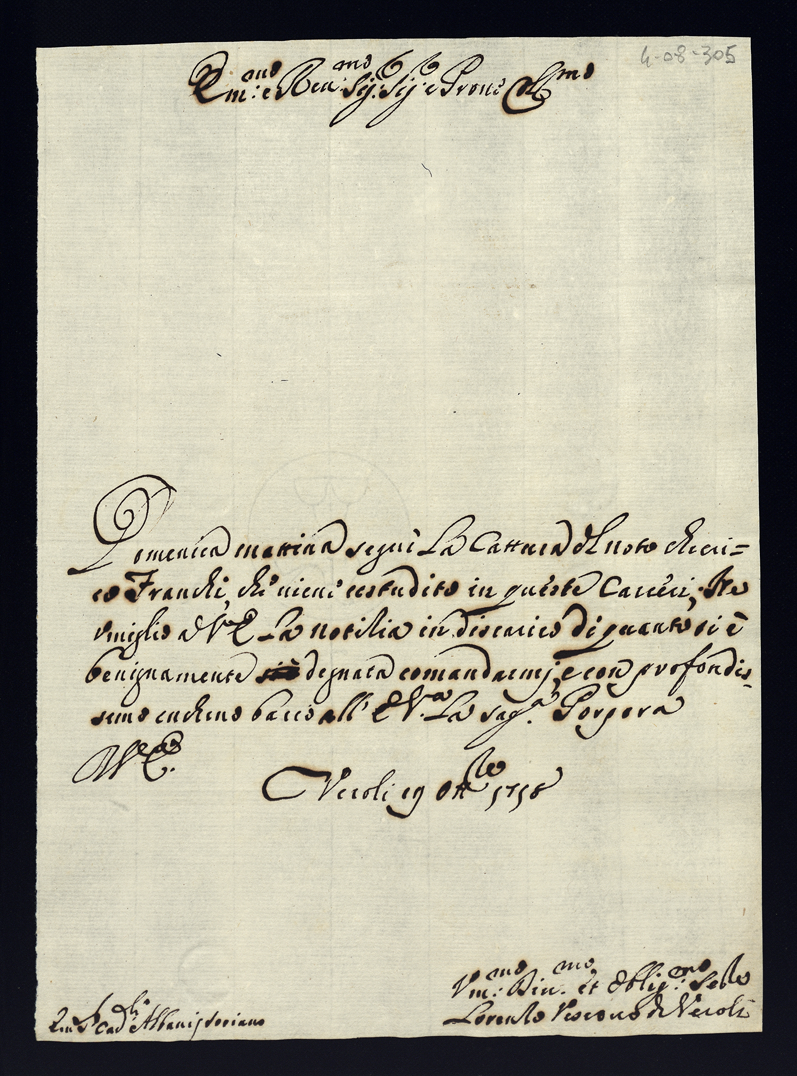 4-08-305
Em:mo e Reu:mo Sig: Sig: e Prone Coll:mo
Domenica mattina seguì La Cattura del noto Chieri=
co Franchi, che viene custodito in queste Carceri, Ne
vmiglio a V.E. La notitia in discarico di quanto si è
benignamente degnata comandarmi, e con profondis-
simo inchino bacio all' E.V.a La sag.a Porpora
D V.E.
Veroli 19 Ott.re 1718
Vm:mo Diu:mo et Oblig:mo Se.re
Lorenzo Vescouo di Veroli
Em. S. Card.le Albani Soriano